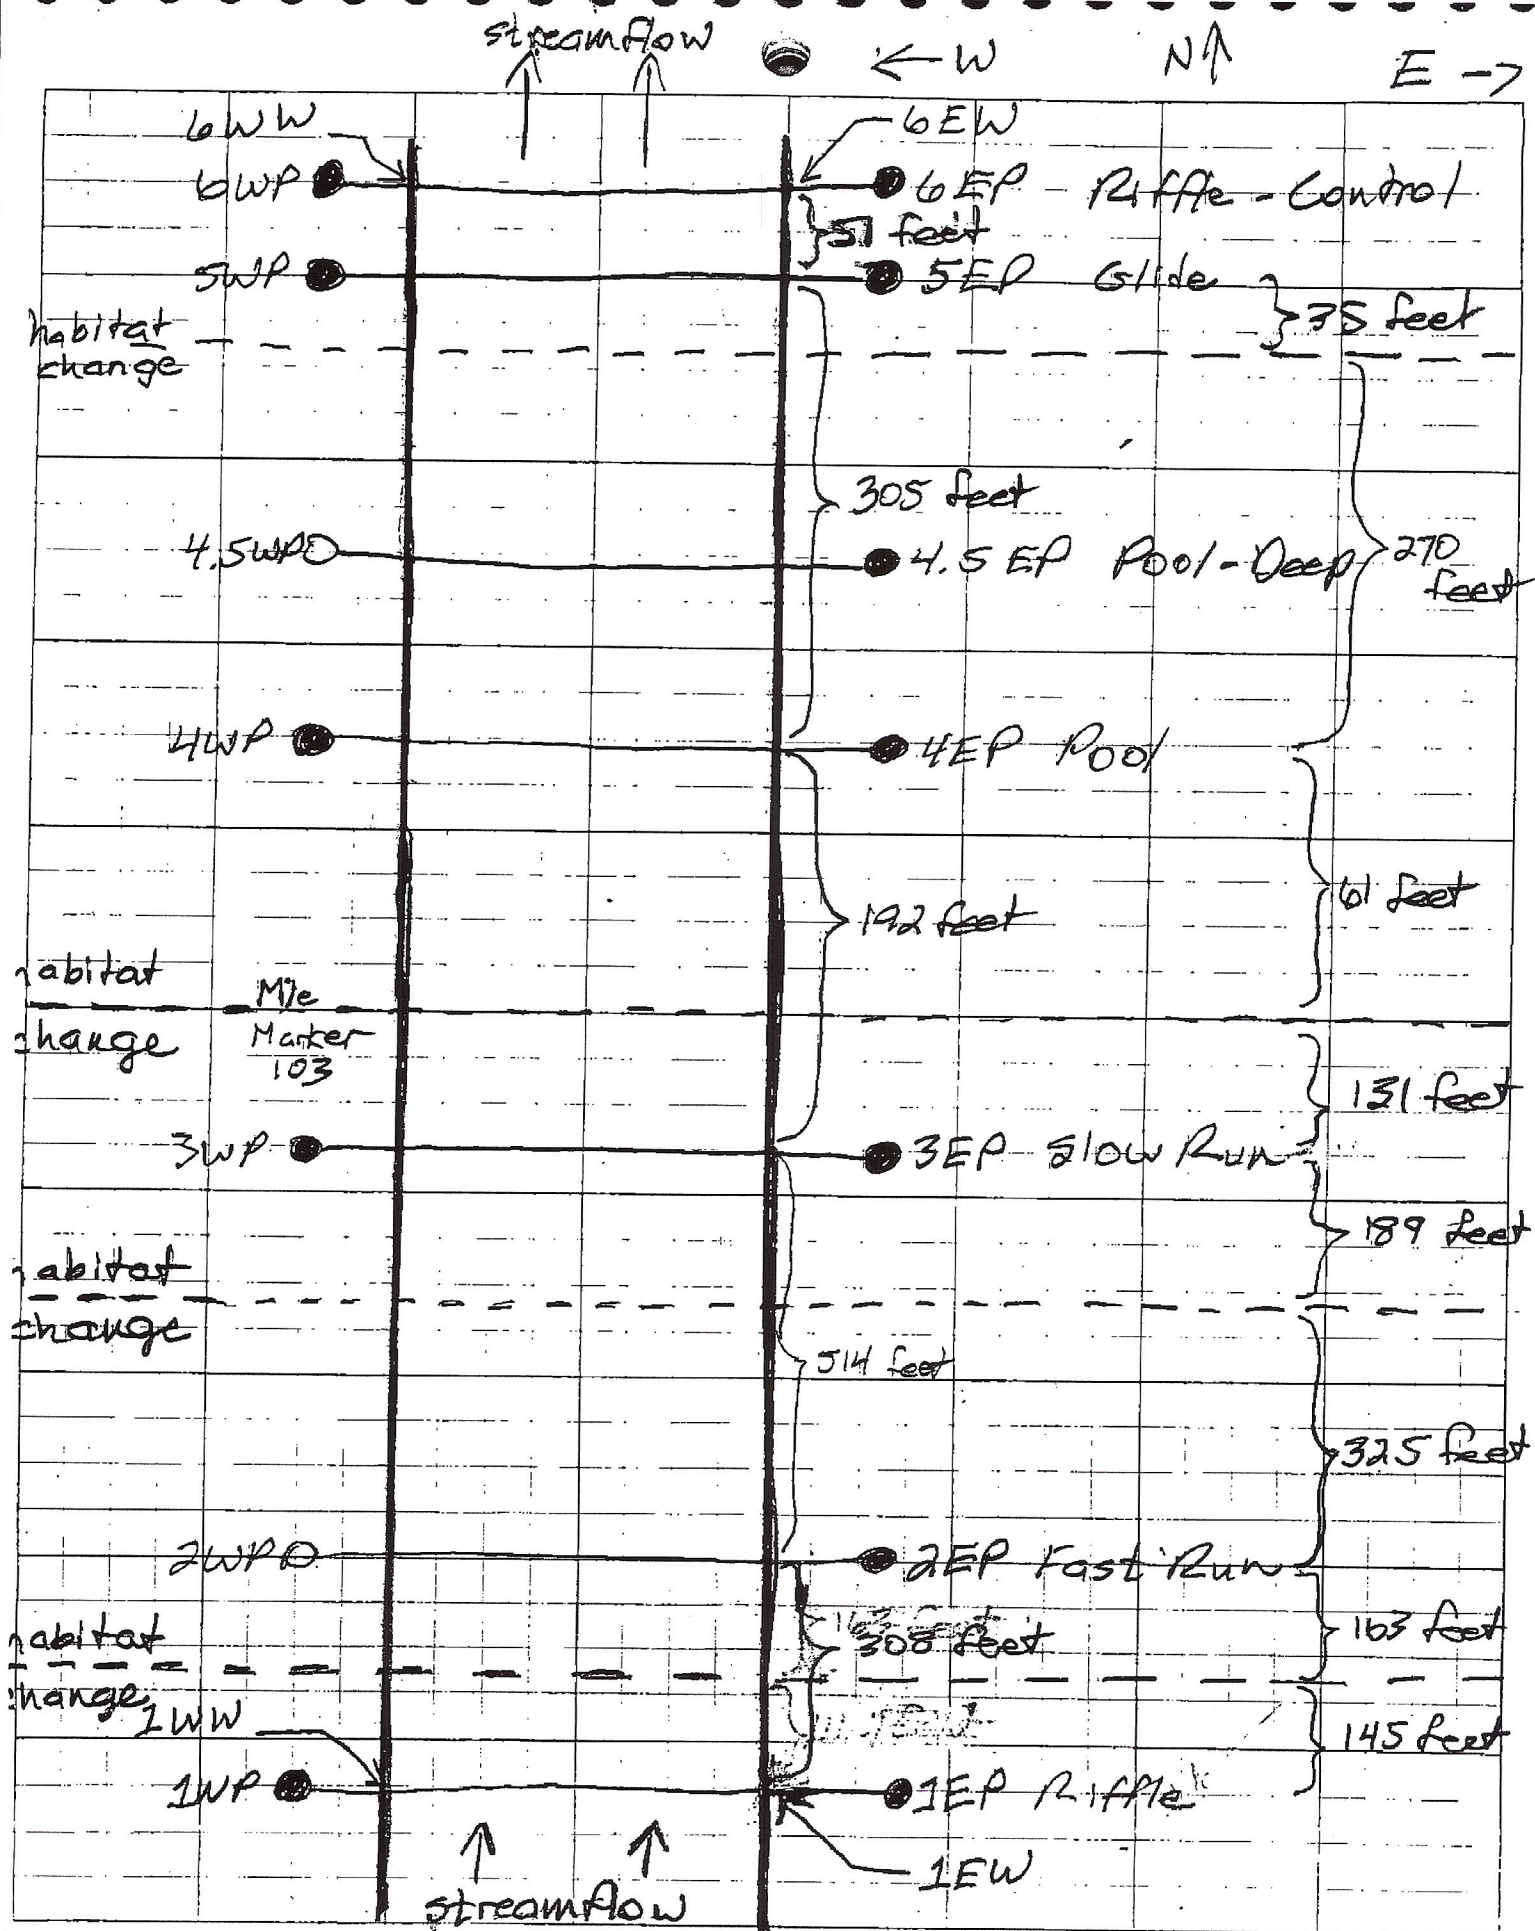 streamflow
← W
N↑
E →
6WW
6EW
6WP
6EP Riffle - Control
57 feet
5WP
5EP Glide
35 feet
habitat
change
305 feet
4.5WP
4.5 EP Pool-Deep
270
feet
4WP
4EP Pool
192 feet
61 feet
abitat
Mile
change
Marker
103
131 feet
3WP
3EP Slow Run
189 feet
abitat
change
514 feet
325 feet
2WP
2EP Fast Run
abitat
308 feet
163 feet
hange
1WW
145 feet
1WP
1EP Riffle
1EW
streamflow